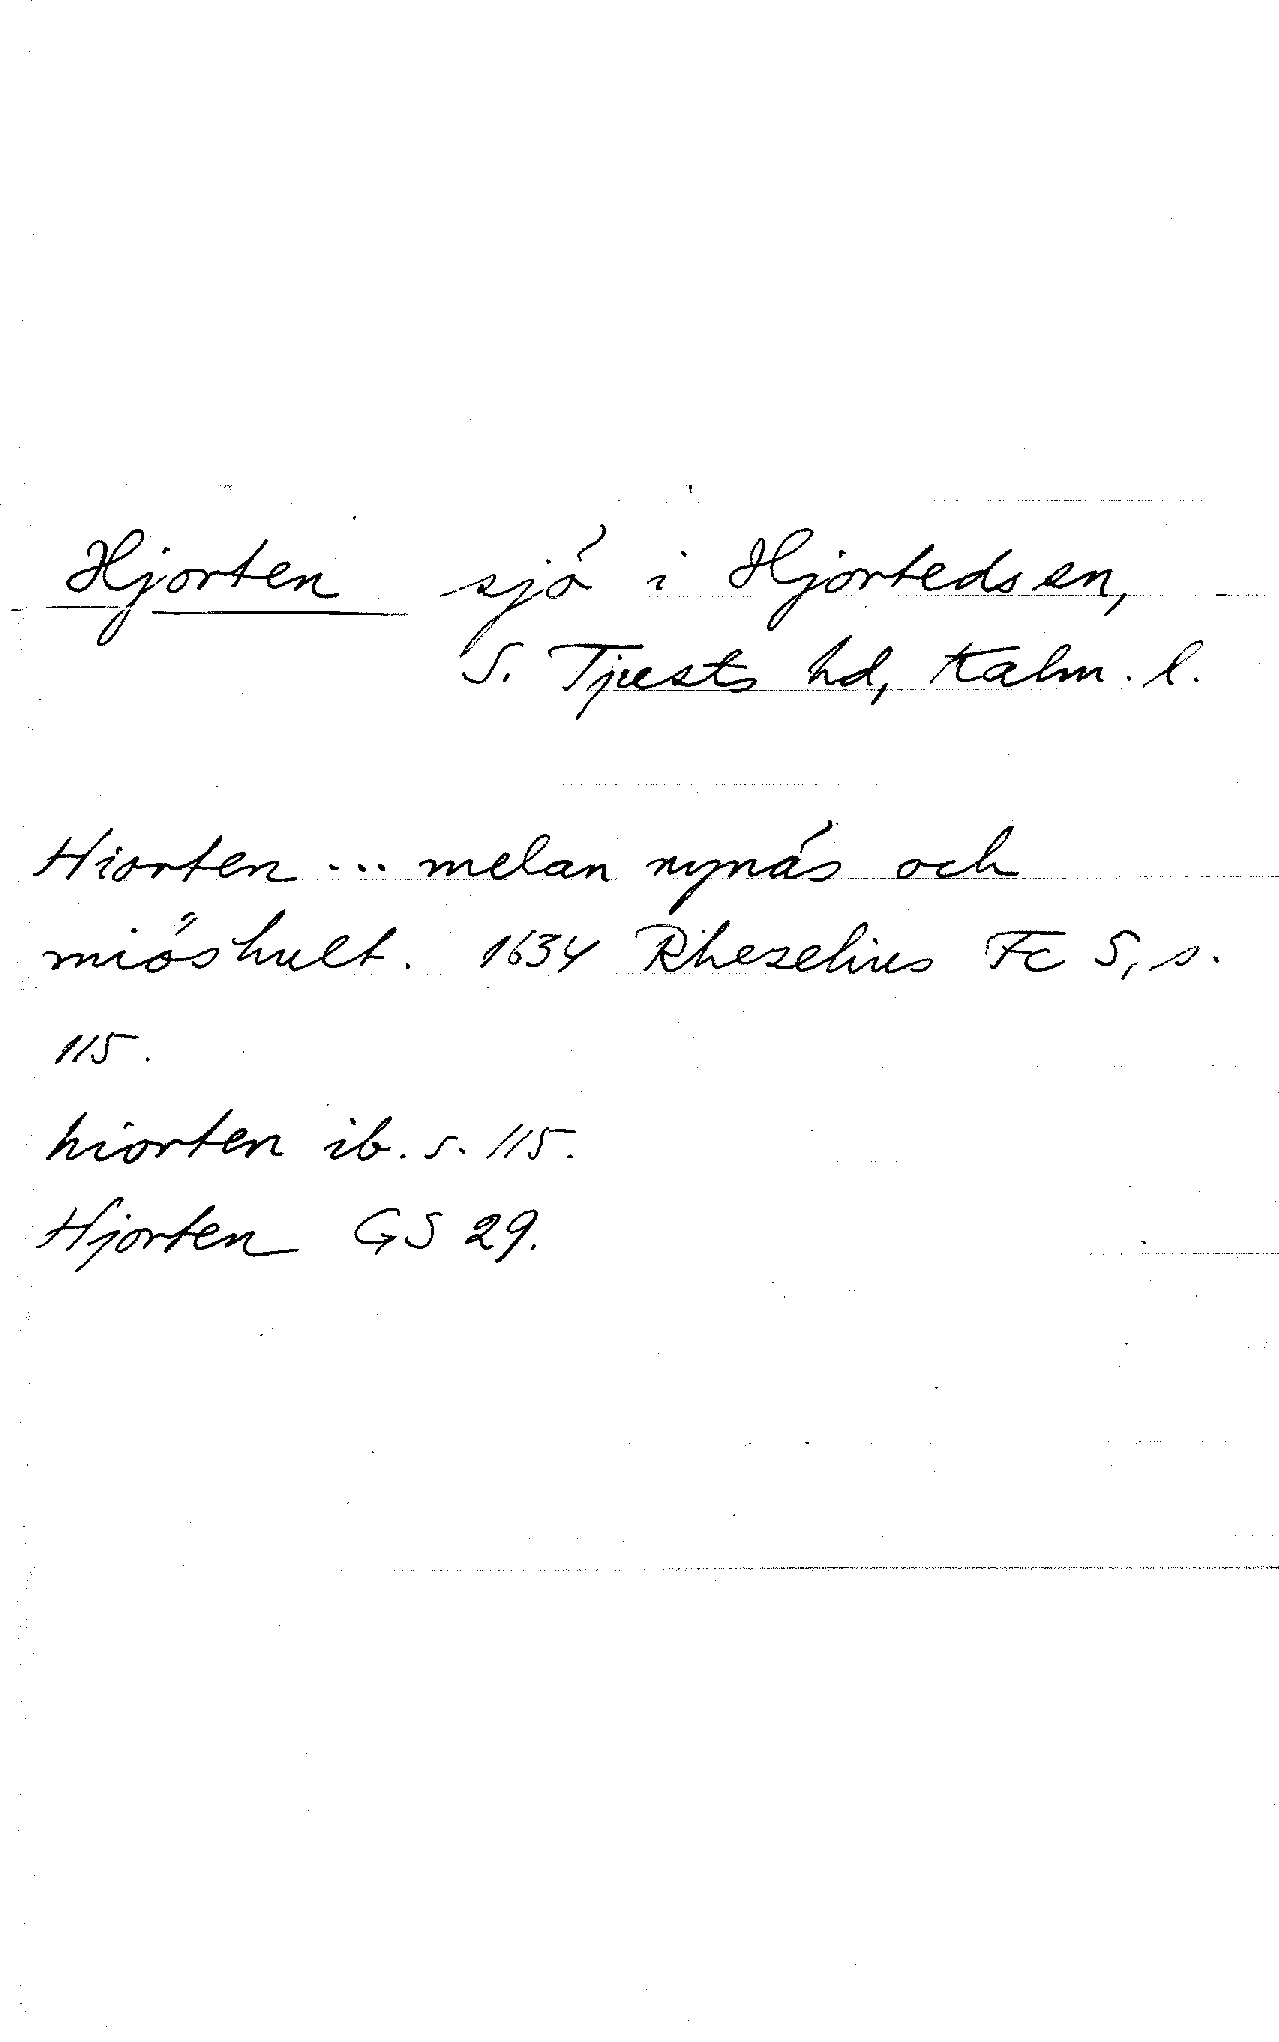 Hjorten sjö i Hjorteds sn,
S. Tjusts hd, Kalm. l.
Hiorten ... melan nynäs och
miöshult. 1634 Rhezelius Fc 5, s.
115.
hiorten ib. s. 115.
Hjorten GS 29.